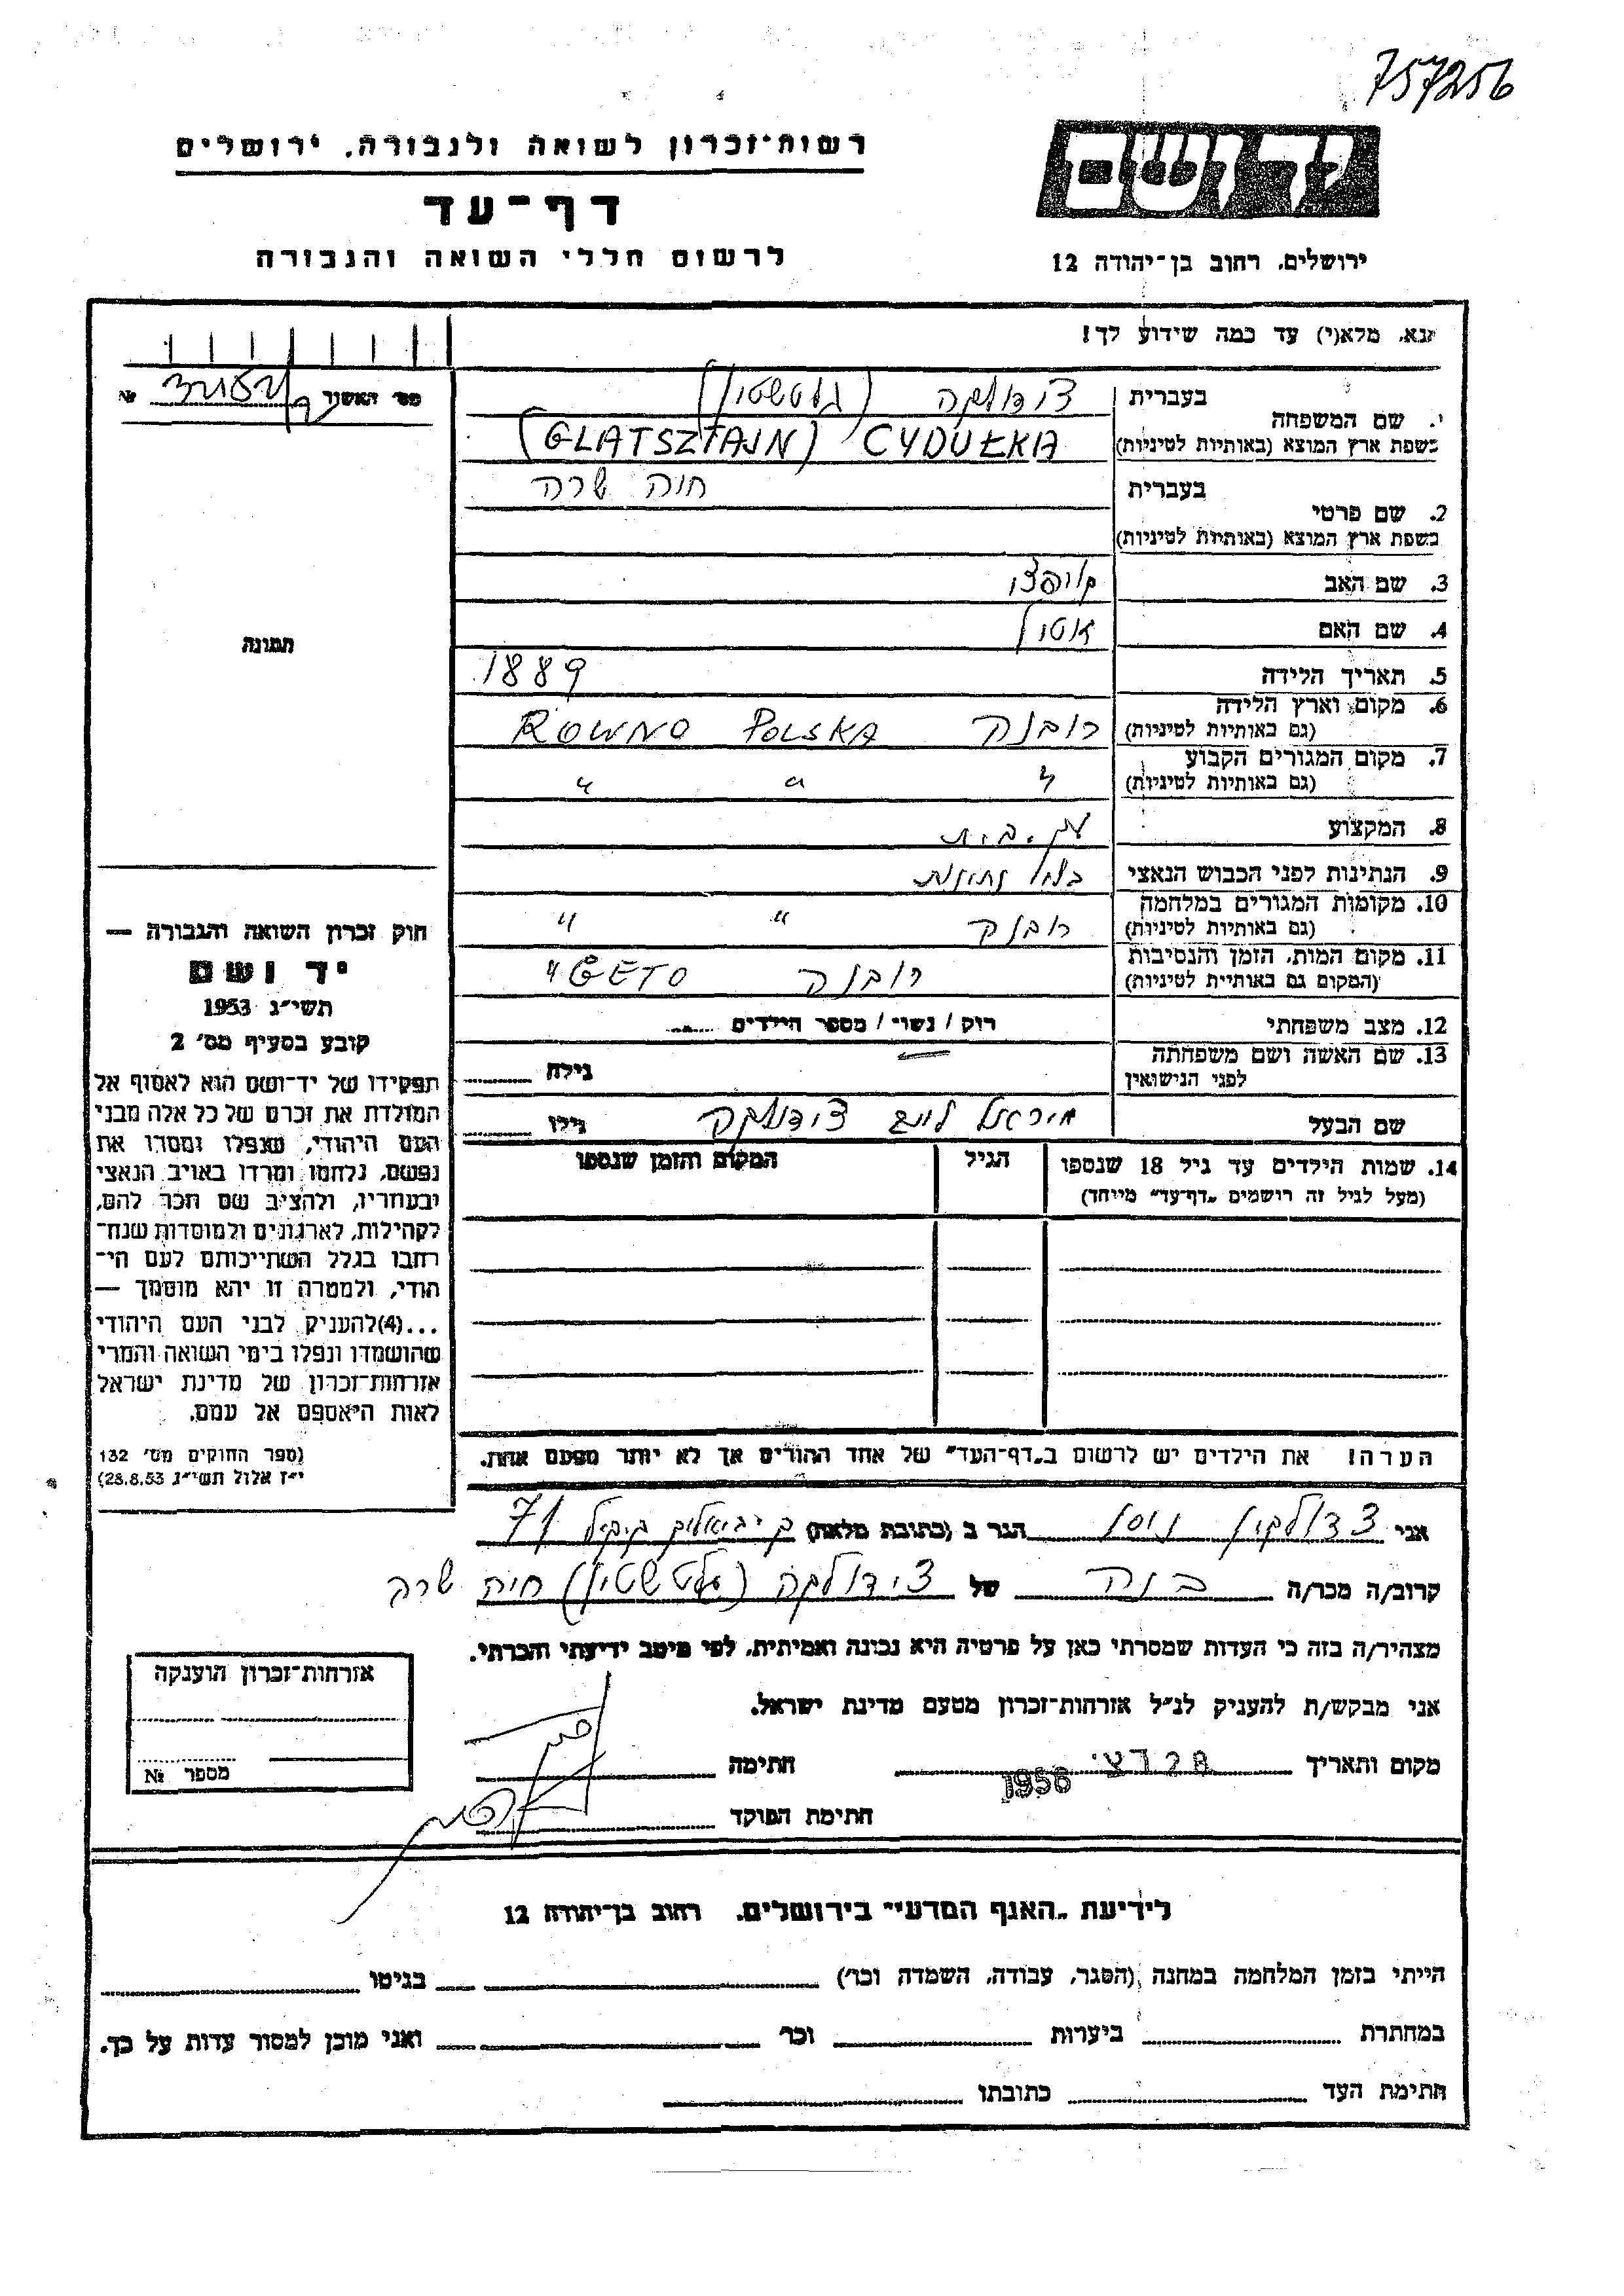 757256
יד ושם
ירושלים, רחוב בן־יהודה 12
רשות־זכרון לשואה ולגבורה, ירושלים
דף־עד
לרשום חללי השואה והגבורה
נא, מלא(י) עד כמה שידוע לך!
מס' האשור №
1. שם המשפחה
בעברית צידולקה (גלטשטיין)
בשפת ארץ המוצא (באותיות לטיניות) (GLATSZTAJN) CYDUŁKA
2. שם פרטי
בעברית חיה שרה
בשפת ארץ המוצא (באותיות לטיניות)
3. שם האב
4. שם האם
5. תאריך הלידה 1889
6. מקום וארץ הלידה
(גם באותיות לטיניות) רובנה ROWNO POLSKA
7. מקום המגורים הקבוע
(גם באותיות לטיניות) " " "
8. המקצוע עק. בית
9. הנתינות לפני הכבוש הנאצי
10. מקומות המגורים במלחמה
(גם באותיות לטיניות) רובנה " "
11. מקום המות, הזמן והנסיבות
(המקום גם באותיות לטיניות) רובנה GETO "
12. מצב משפחתי רוק / נשוי / מספר הילדים
13. שם האשה ושם משפחתה
לפני הנישואין גילה
שם הבעל צידולקה גילו
14. שמות הילדים עד גיל 18 שנספו הגיל המקום והזמן שנספו
(מעל לגיל זה רושמים „דף־עד" מייחד)
הערה! את הילדים יש לרשום ב„דף־העד" של אחד ההורים אך לא יותר מפעם אחת.
תמונה
חוק זכרון השואה והגבורה —
יד ושם
תשי"ג 1953
קובע בסעיף מס' 2
תפקידו של יד־ושם הוא לאסוף אל
המולדת את זכרם של כל אלה מבני
העם היהודי, שנפלו ומסרו את
נפשם, נלחמו ומרדו באויב הנאצי
ובעוזריו, ולהציב שם וזכר להם,
לקהילות, לארגונים ולמוסדות שנח־
רבו בגלל השתייכותם לעם הי־
הודי, ולמטרה זו יהא מוסמך —
...(4)להעניק לבני העם היהודי
שהושמדו ונפלו בימי השואה והמרי
אזרחות־זכרון של מדינת ישראל
לאות היאספם אל עמם.
(ספר החוקים מס' 132
י"ז אלול תשי"ג 28.8.53)
אני צדולקין ניסן הגר ב (כתובת מלאה) 71
קרוב/ה מכר/ה בנה של צידולקה (גלטשטיין) חיה שרה
מצהיר/ה בזה כי העדות שמסרתי כאן על פרטיה היא נכונה ואמיתית, לפי מיטב ידיעתי והכרתי.
אני מבקש/ת להעניק לנ"ל אזרחות־זכרון מטעם מדינת ישראל.
מקום ותאריך 28 דצ. 1956 חתימה
חתימת הפוקד
אזרחות־זכרון הוענקה
מספר №
לידיעת „האגף המדעי" בירושלים, רחוב בן־יהודה 12
הייתי בזמן המלחמה במחנה (הסגר, עבודה, השמדה וכו') בגיטו
במחתרת ביערות וכו' ואני מוכן למסור עדות על כך.
חתימת העד כתובתו